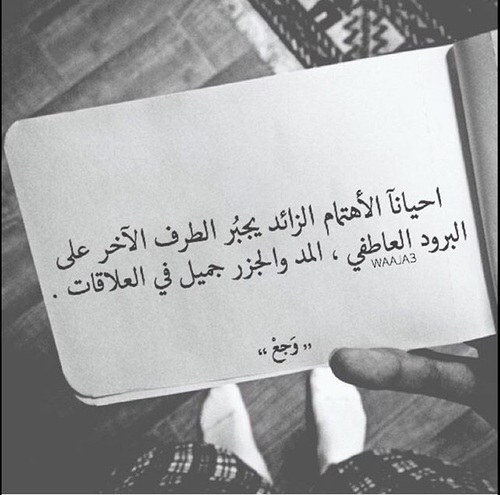 احيانآ الأهتمام الزائد يجبُر الطرف الآخر على
البرود العاطفي ، المد والجزر جميل في العلاقات .
WAAJA3
,, وَجعْ ,,